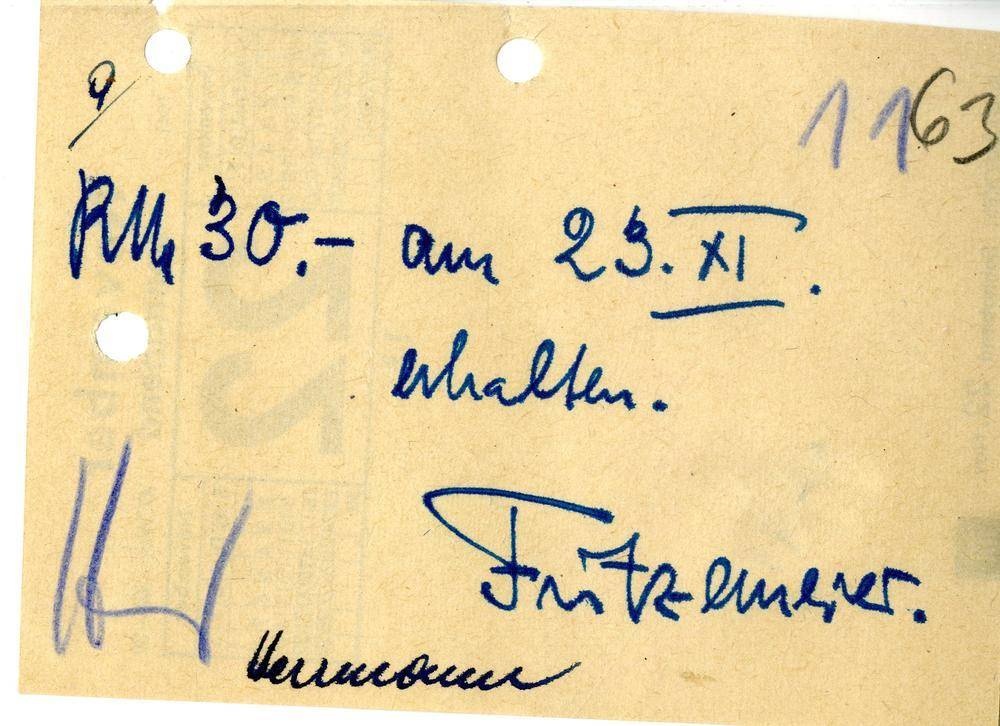 9/
1163
RM 30.- am 23. XI.
erhalten.
Fritzemeier.
Herrmann